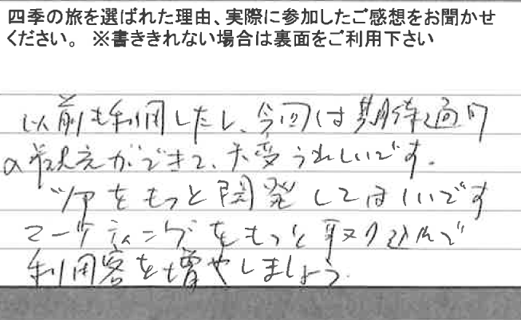 四季の旅を選ばれた理由、実際に参加したご感想をお聞かせ
ください。 ※書ききれない場合は裏面をご利用下さい
以前も利用したし、今回は期待通り
の観光ができて、大変うれしいです。
ツアをもっと開発してほしいです
マーケティングをもっと取り込んで
利用客を増やしましょう